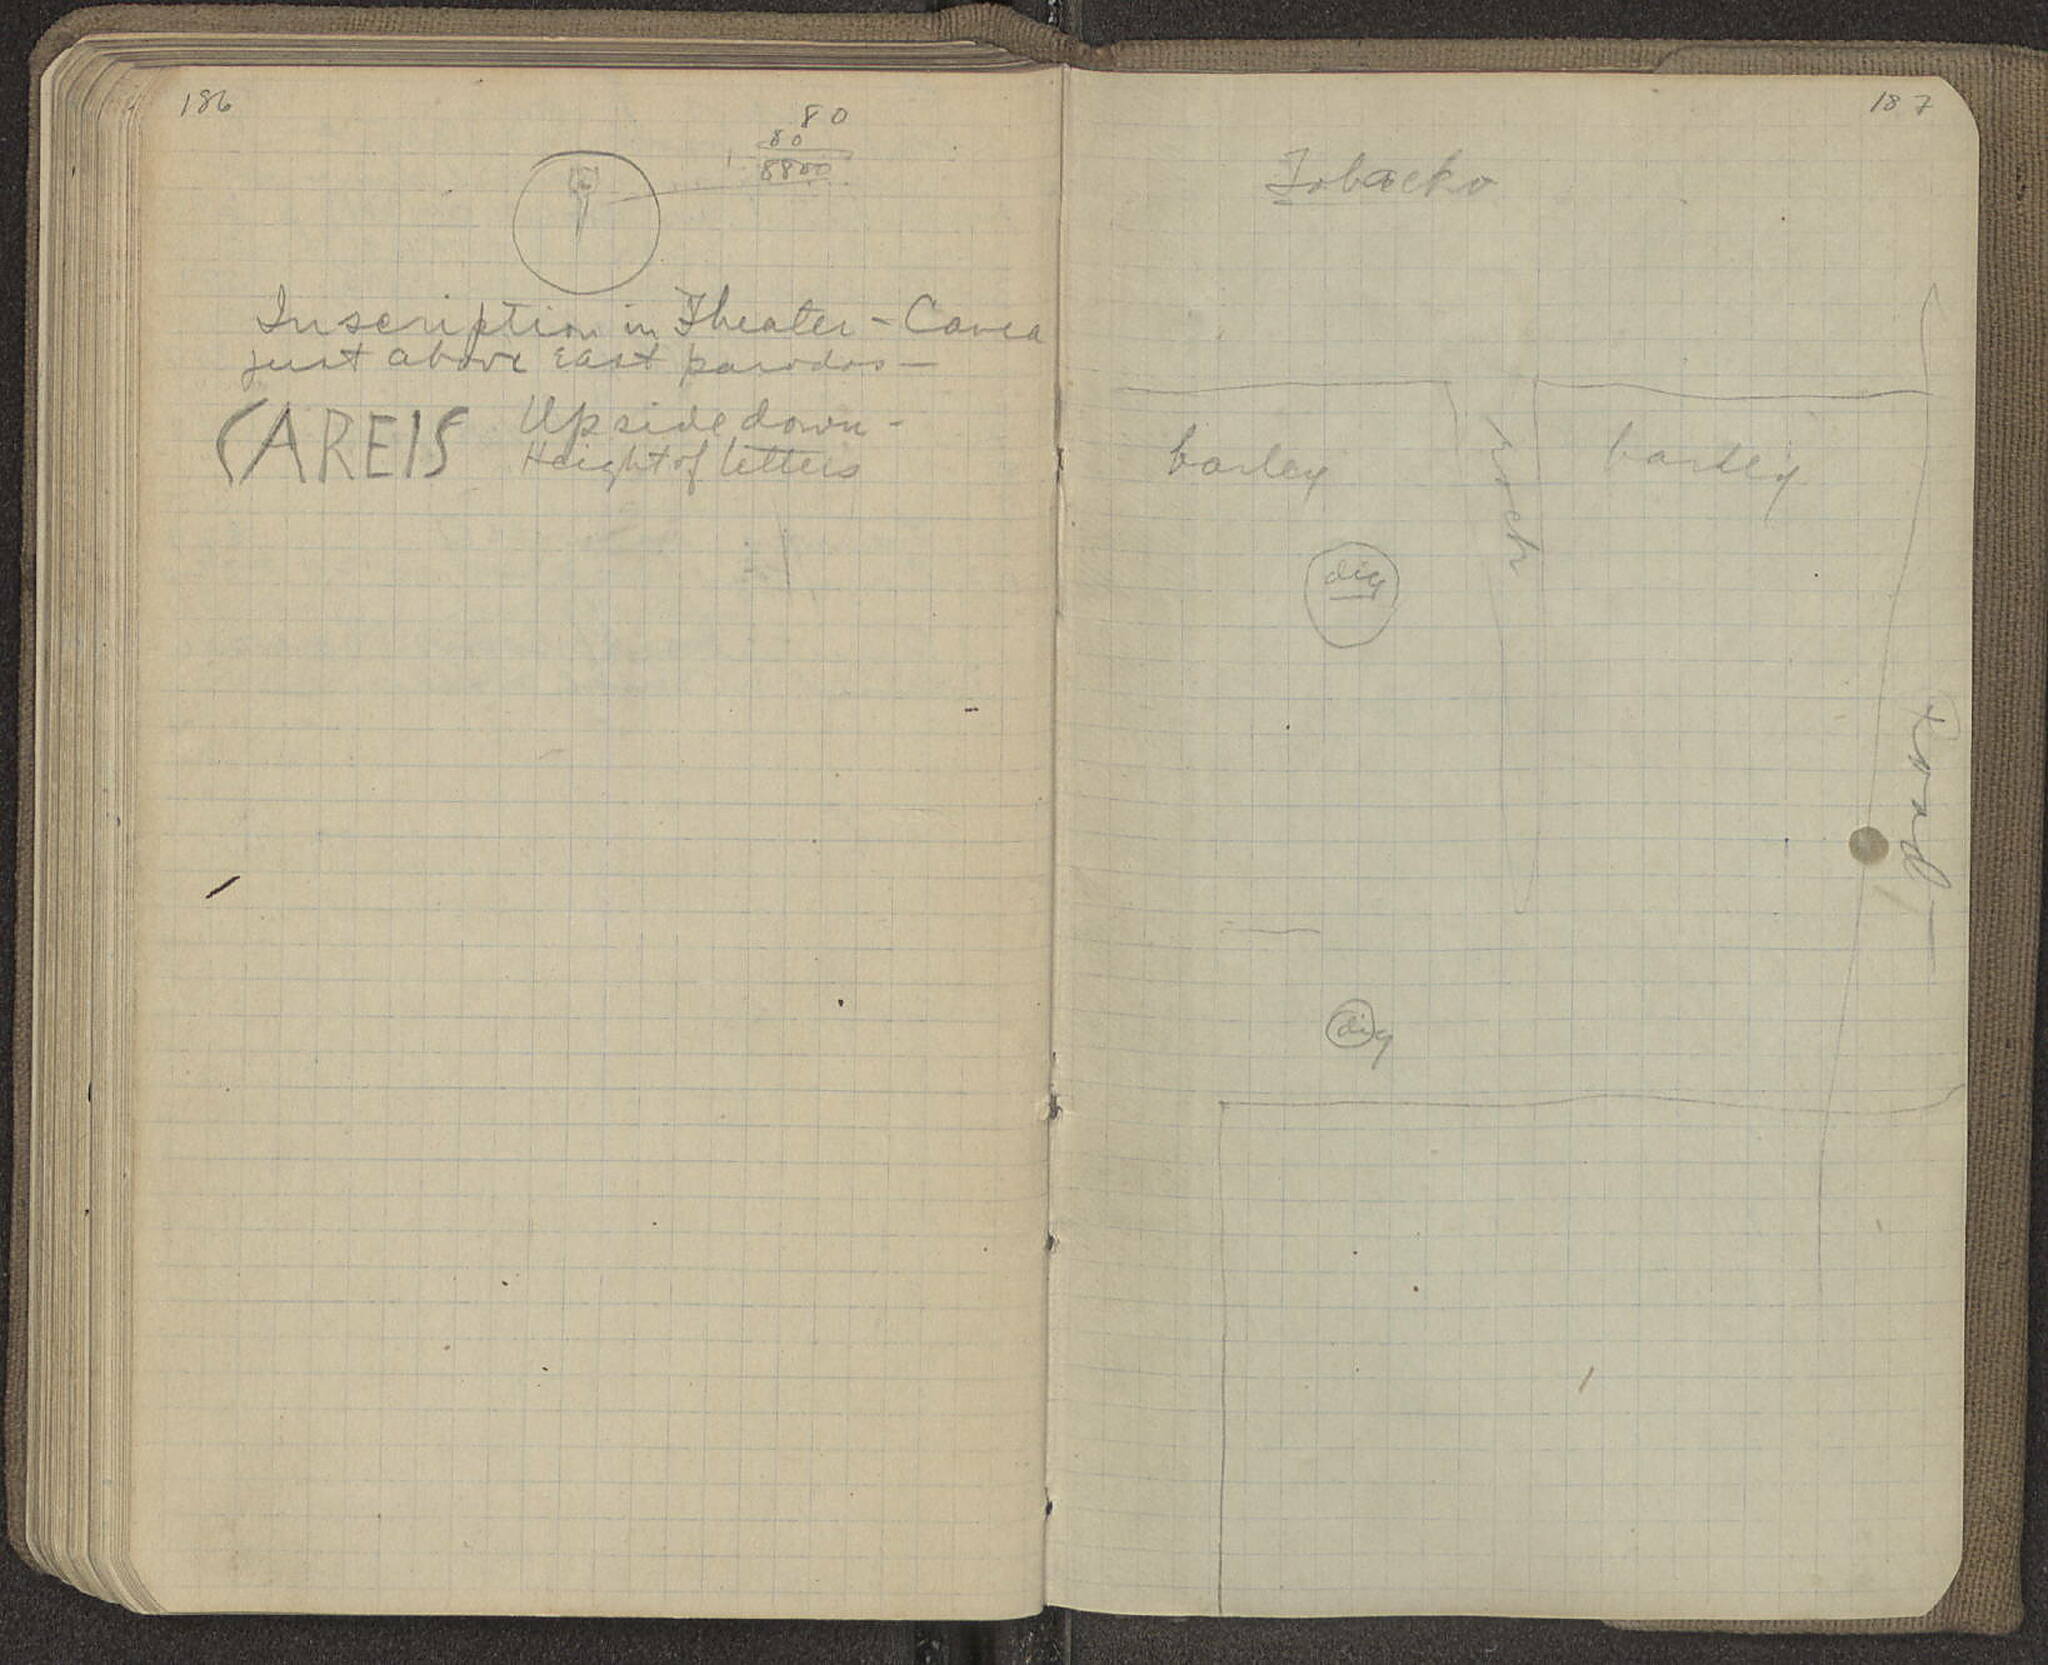 186
80
80
8800
Inscription in Theater - Cavea
just above east parodos -
CAREIS Upside down -
Height of letters
187
Tobacko
barley
rock
barley
dig
Road
dig